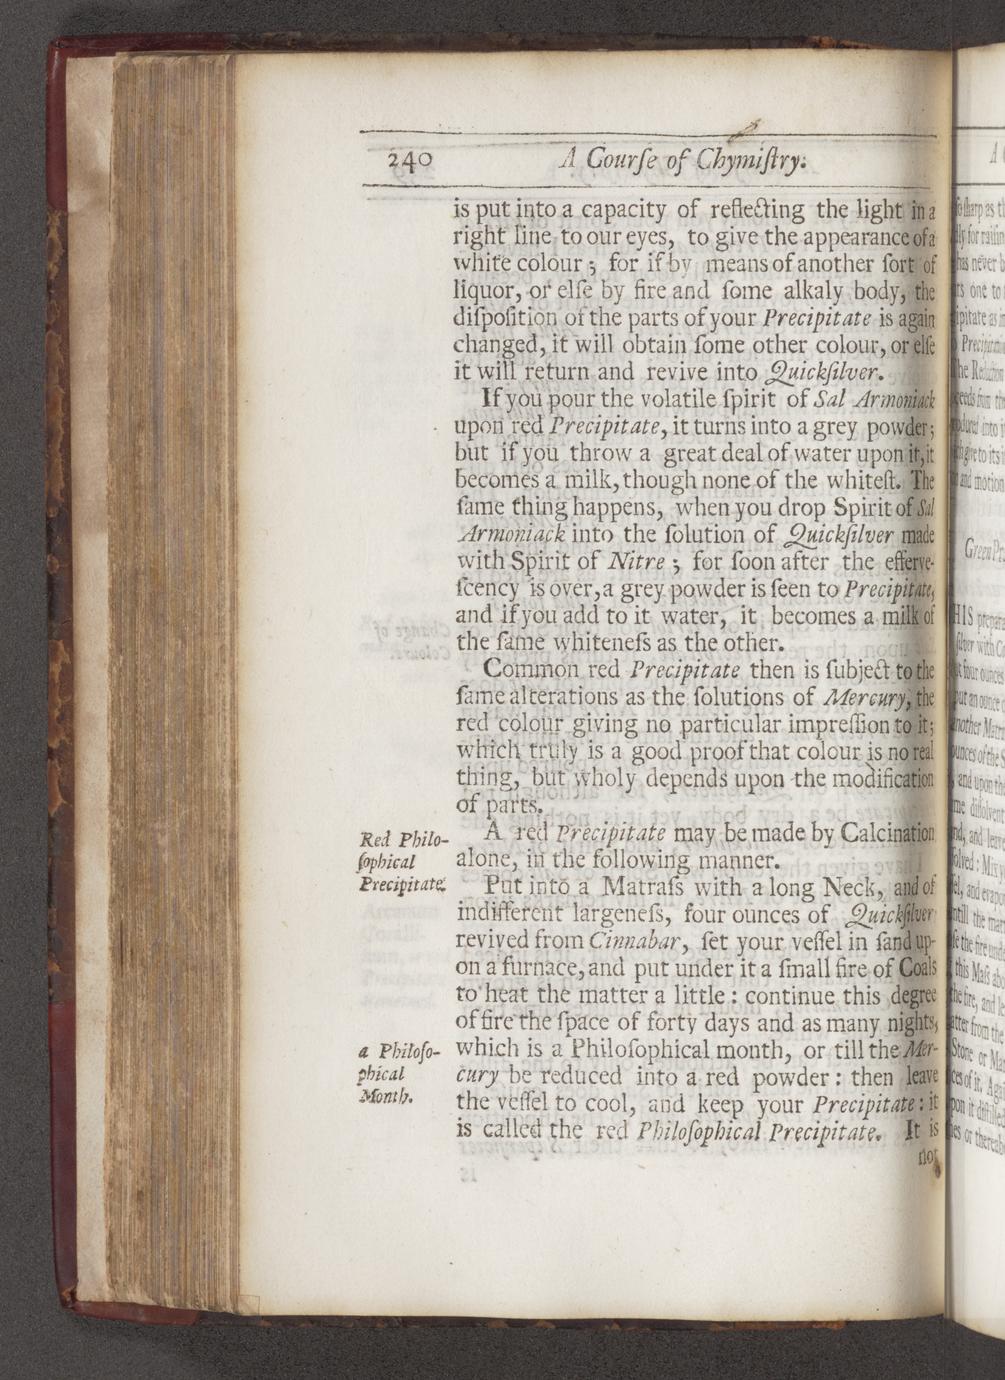 240 A Courſe of Chymiſtry.
is put into a capacity of reflecting the light in a
right line to our eyes, to give the appearance of a
white colour; for if by means of another ſort of
liquor, or elſe by fire and ſome alkaly body, the
diſpoſition of the parts of your Precipitate is again
changed, it will obtain ſome other colour, or elſe
it will return and revive into Quickſilver.
If you pour the volatile ſpirit of Sal Armoniack
upon red Precipitate, it turns into a grey powder;
but if you throw a great deal of water upon it, it
becomes a milk, though none of the whiteſt. The
ſame thing happens, when you drop Spirit of Sal
Armoniack into the ſolution of Quickſilver made
with Spirit of Nitre; for ſoon after the efferve-
ſcency is over, a grey powder is ſeen to Precipitate,
and if you add to it water, it becomes a milk of
the ſame whiteneſs as the other.
Common red Precipitate then is ſubject to the
ſame alterations as the ſolutions of Mercury, the
red colour giving no particular impreſſion to it;
which truly is a good proof that colour is no real
thing, but wholy depends upon the modification
of parts.
Red Philo-
ſophical
Precipitate.
A red Precipitate may be made by Calcination
alone, in the following manner.
Put into a Matraſs with a long Neck, and of
indifferent largeneſs, four ounces of Quickſilver
revived from Cinnabar, ſet your veſſel in ſand up-
on a furnace, and put under it a ſmall fire of Coals
to heat the matter a little: continue this degree
of fire the ſpace of forty days and as many nights,
a Philoſo-
phical
Month.
which is a Philoſophical month, or till the Mer-
cury be reduced into a red powder: then leave
the veſſel to cool, and keep your Precipitate: it
is called the red Philoſophical Precipitate. It is
not